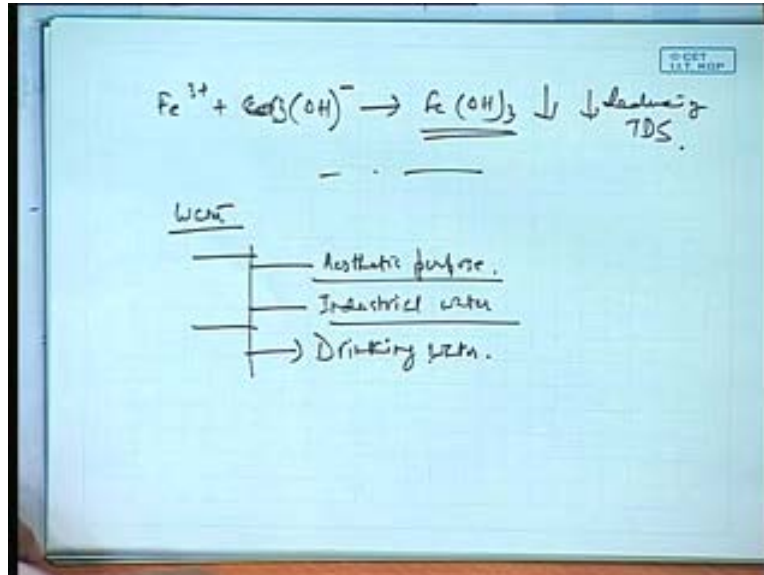 © CET
I.I.T. KGP
Fe³⁺ + 3(OH)⁻ → Fe(OH)₃ ↓ ↓ Reducing
TDS.
Aesthetic purpose.
Industrial water
→ Drinking water.